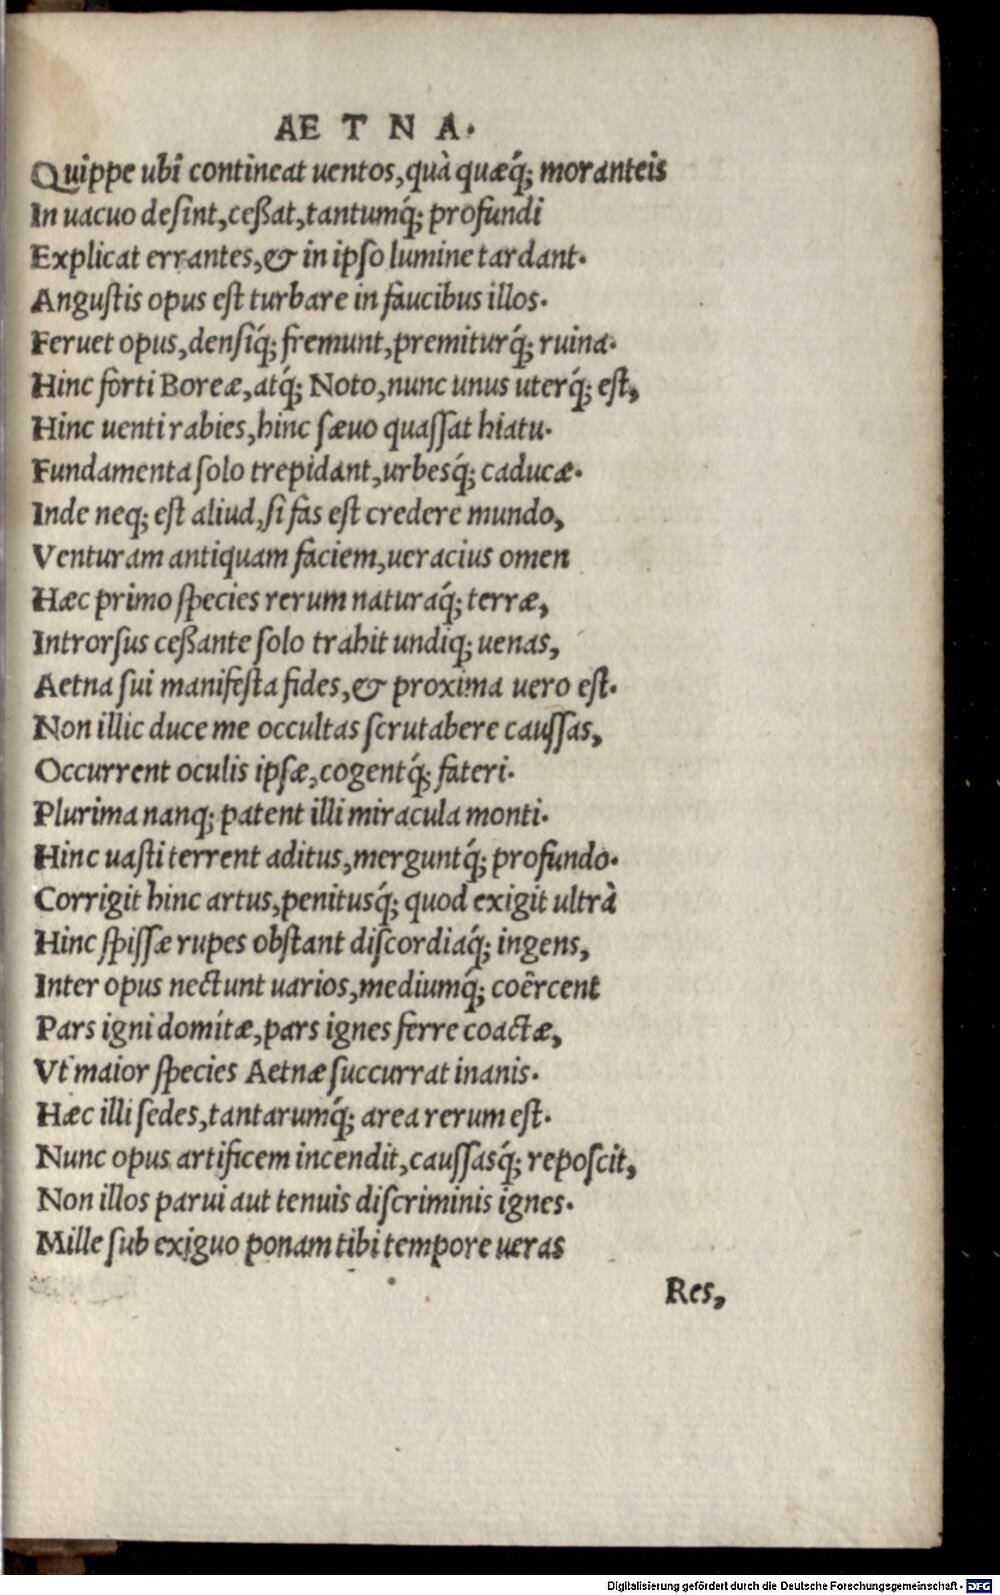 AETNA.
Quippe ubi contineat uentos, quà quæq́; moranteis
In uacuo desint, ceßat, tantumq́; profundi
Explicat errantes, & in ipso lumine tardant.
Angustis opus est turbare in faucibus illos.
Feruet opus, densiq́; fremunt, premiturq́; ruina.
Hinc forti Boreæ, atq́; Noto, nunc unus uterq́; est,
Hinc uenti rabies, hinc sæuo quassat hiatu.
Fundamenta solo trepidant, urbesq́; caducæ.
Inde neq; est aliud, si fas est credere mundo,
Venturam antiquam faciem, ueracius omen
Hæc primo species rerum naturaq́; terræ,
Introrsus ceßante solo trahit undiq; uenas,
Aetna sui manifesta fides, & proxima uero est.
Non illic duce me occultas scrutabere caussas,
Occurrent oculis ipsæ, cogentq́; fateri.
Plurima nanq; patent illi miracula monti.
Hinc uasti terrent aditus, merguntq́; profundo.
Corrigit hinc artus, penitusq́; quod exigit ultrà
Hinc spissæ rupes obstant discordiaq́; ingens,
Inter opus nectunt uarios, mediumq́; coërcent
Pars igni domitæ, pars ignes ferre coactæ,
Vt maior species Aetnæ succurrat inanis.
Hæc illi sedes, tantarumq́; area rerum est.
Nunc opus artificem incendit, caussasq́; reposcit,
Non illos parui aut tenuis discriminis ignes.
Mille sub exiguo ponam tibi tempore ueras
Res,
Digitalisierung gefördert durch die Deutsche Forschungsgemeinschaft - DFG